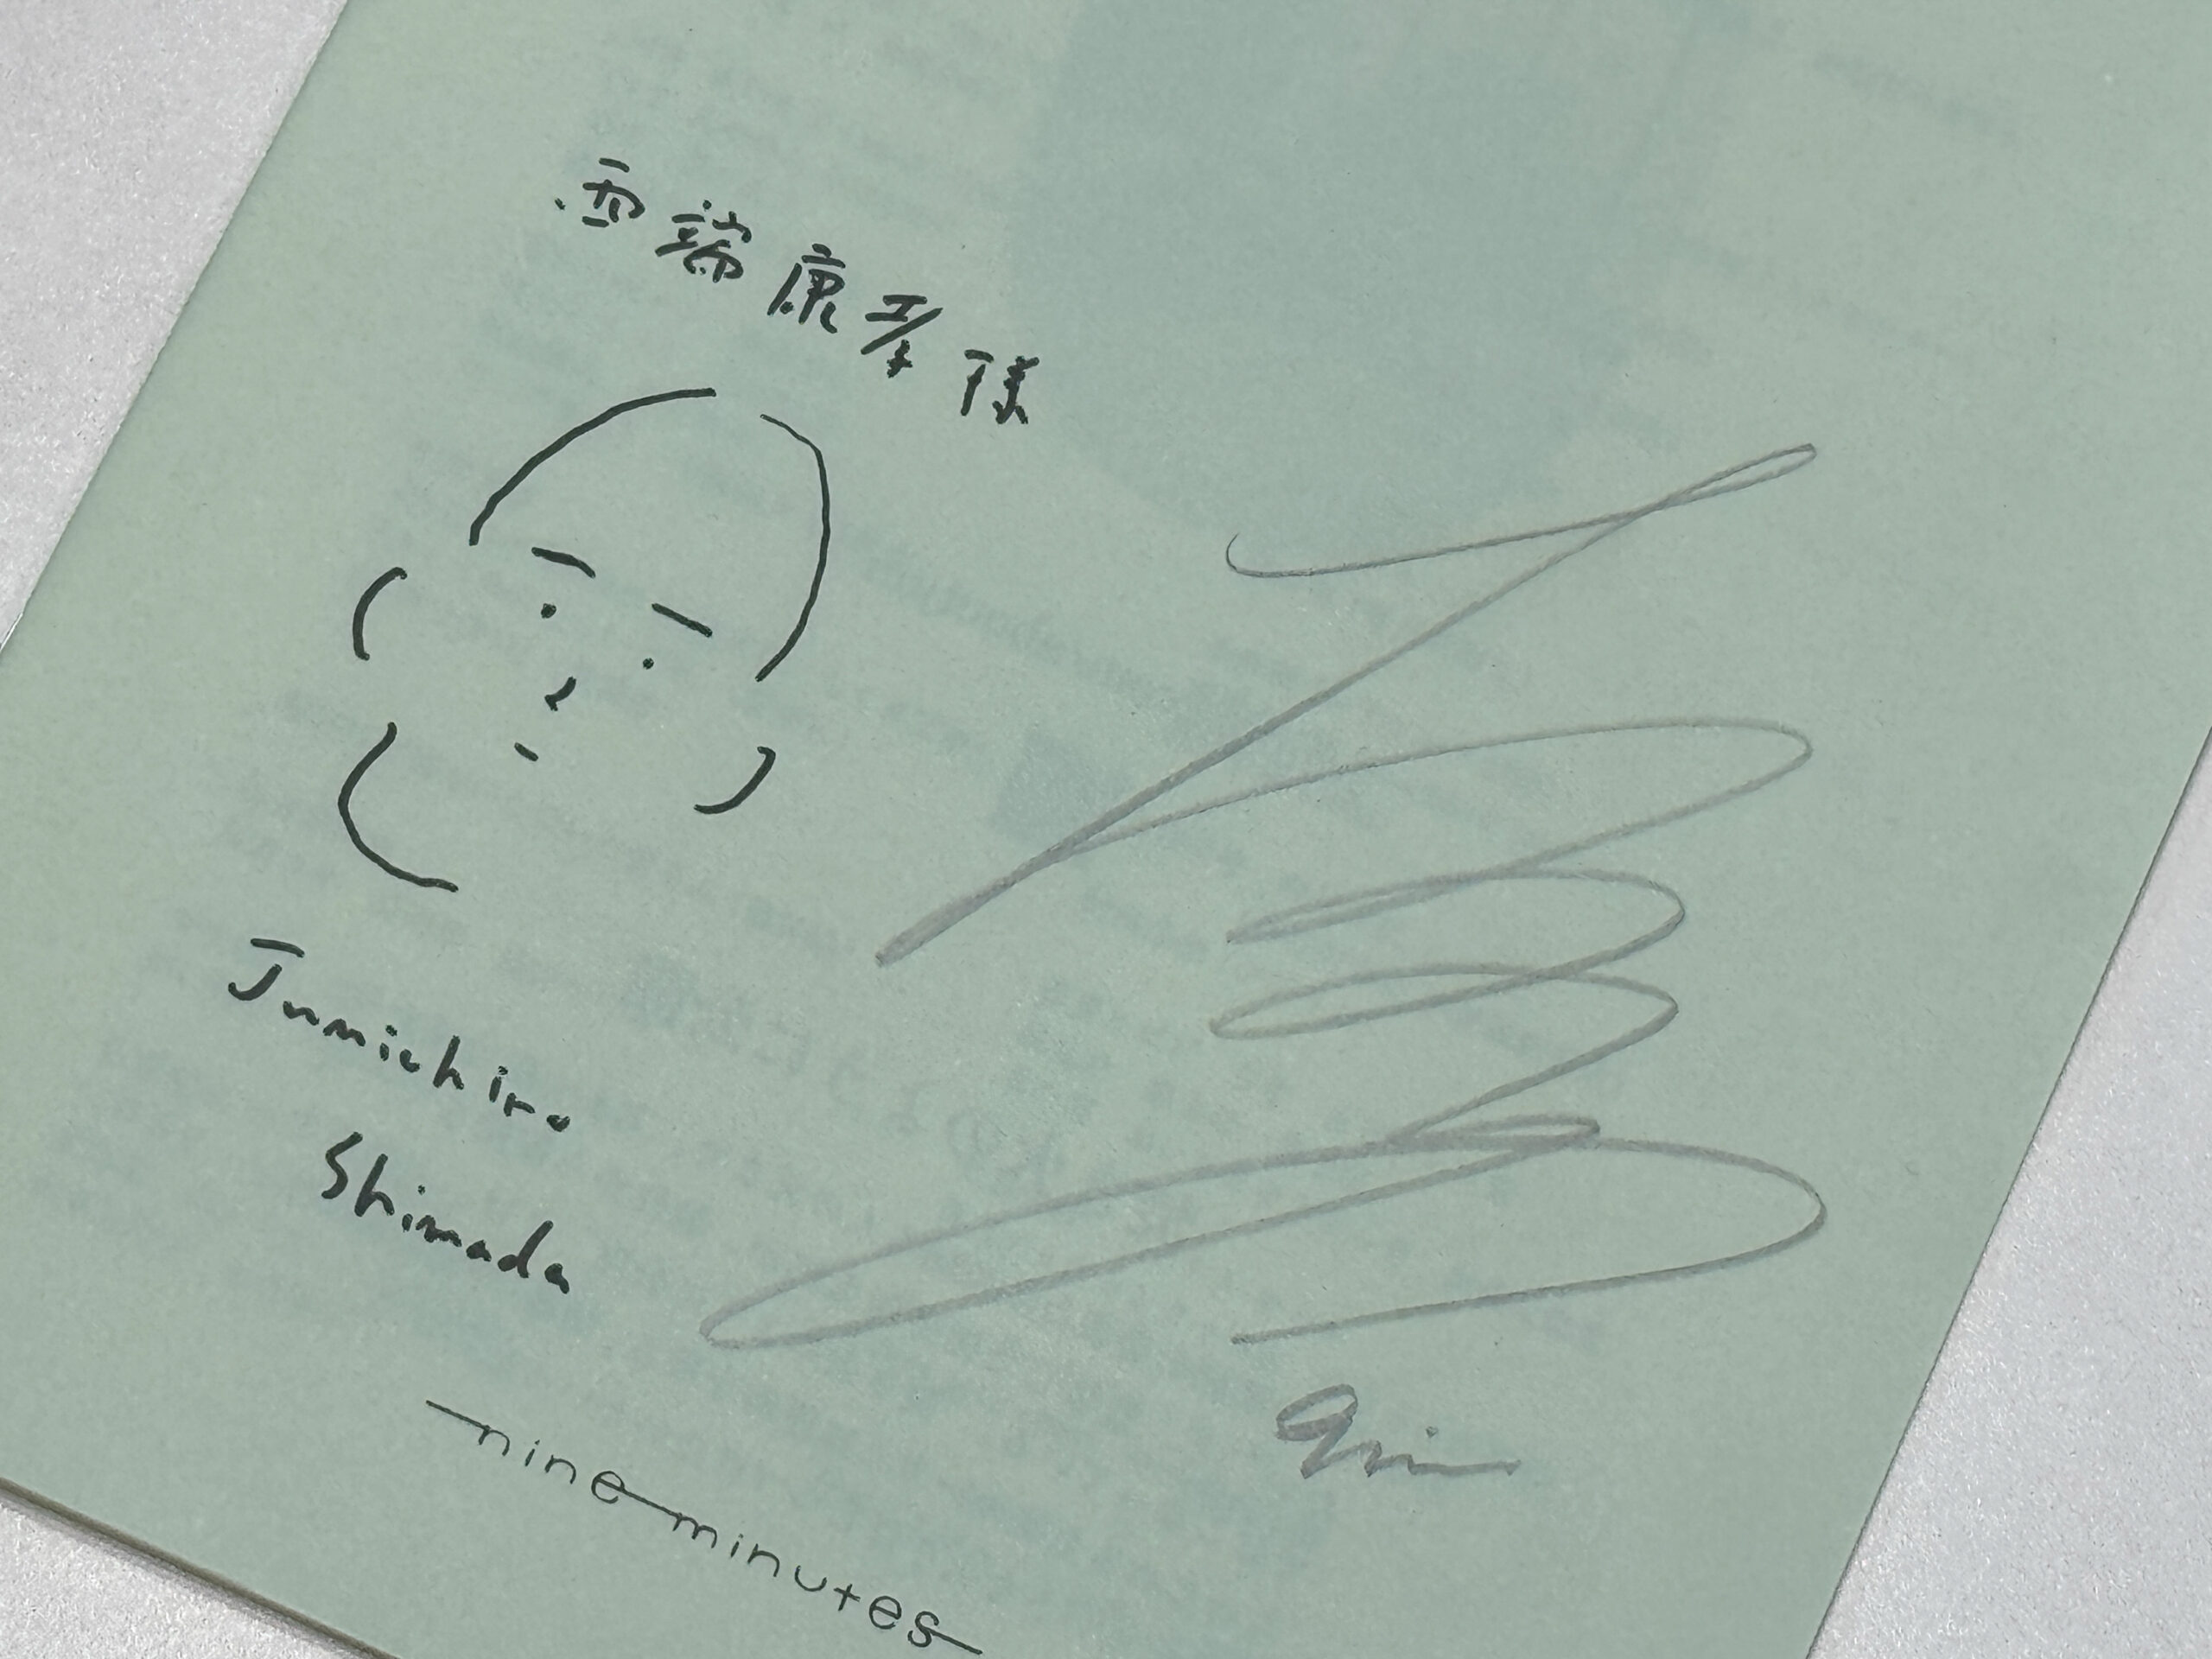 西端康孝様
Junichiro
Shimada
nine minutes